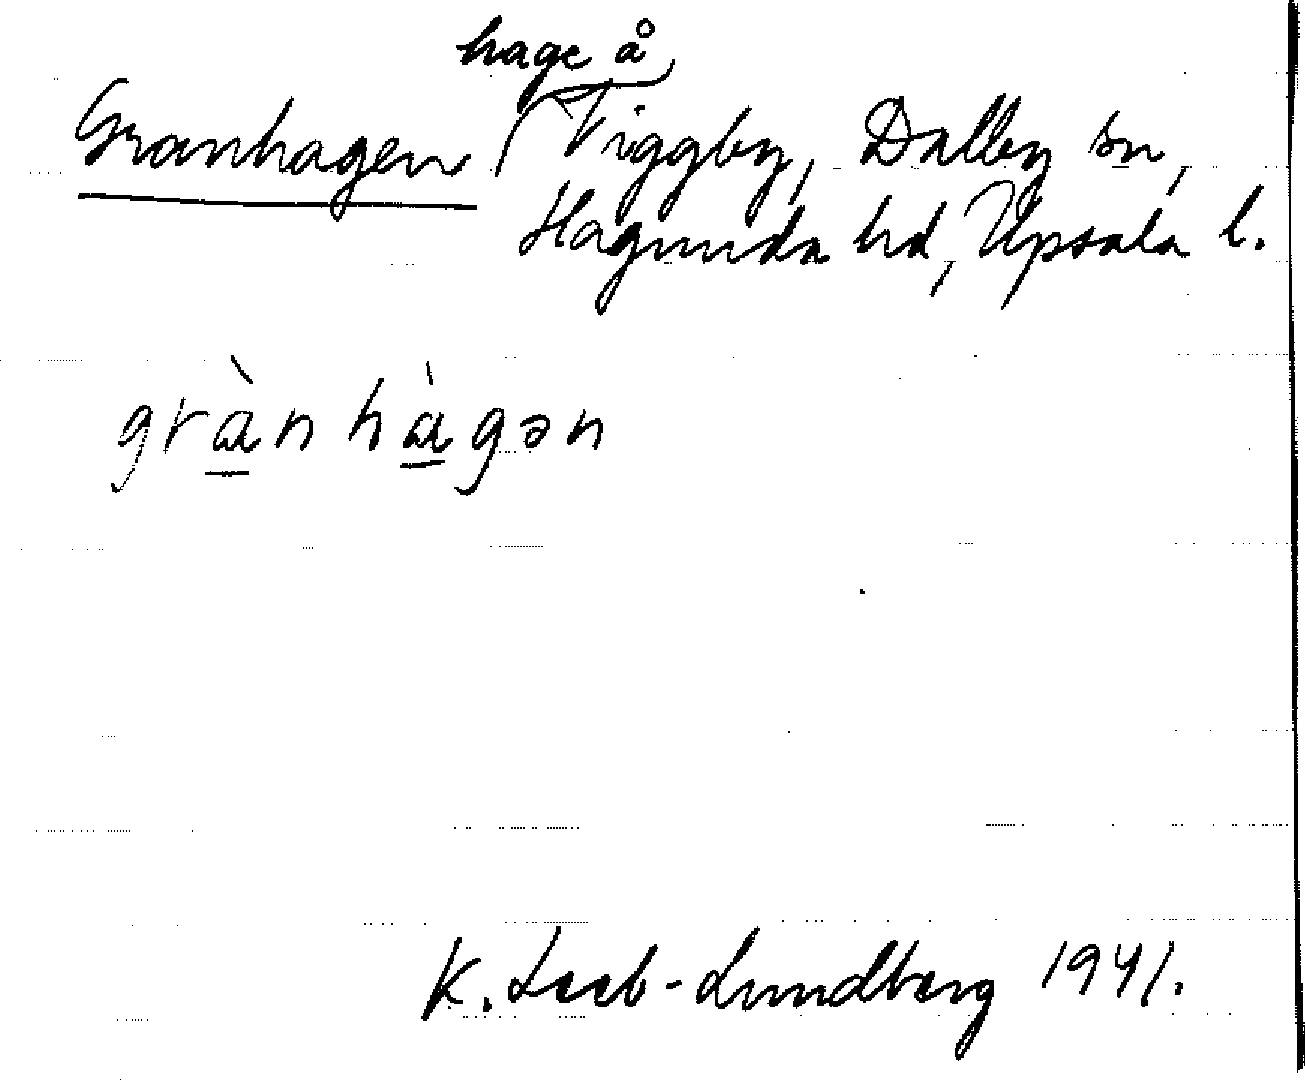 hage å
Granhagen Viggby, Dalby sn,
Hagunda hd, Upsala l.
gràn hàgən
K. Leeb-Lundberg 1941.